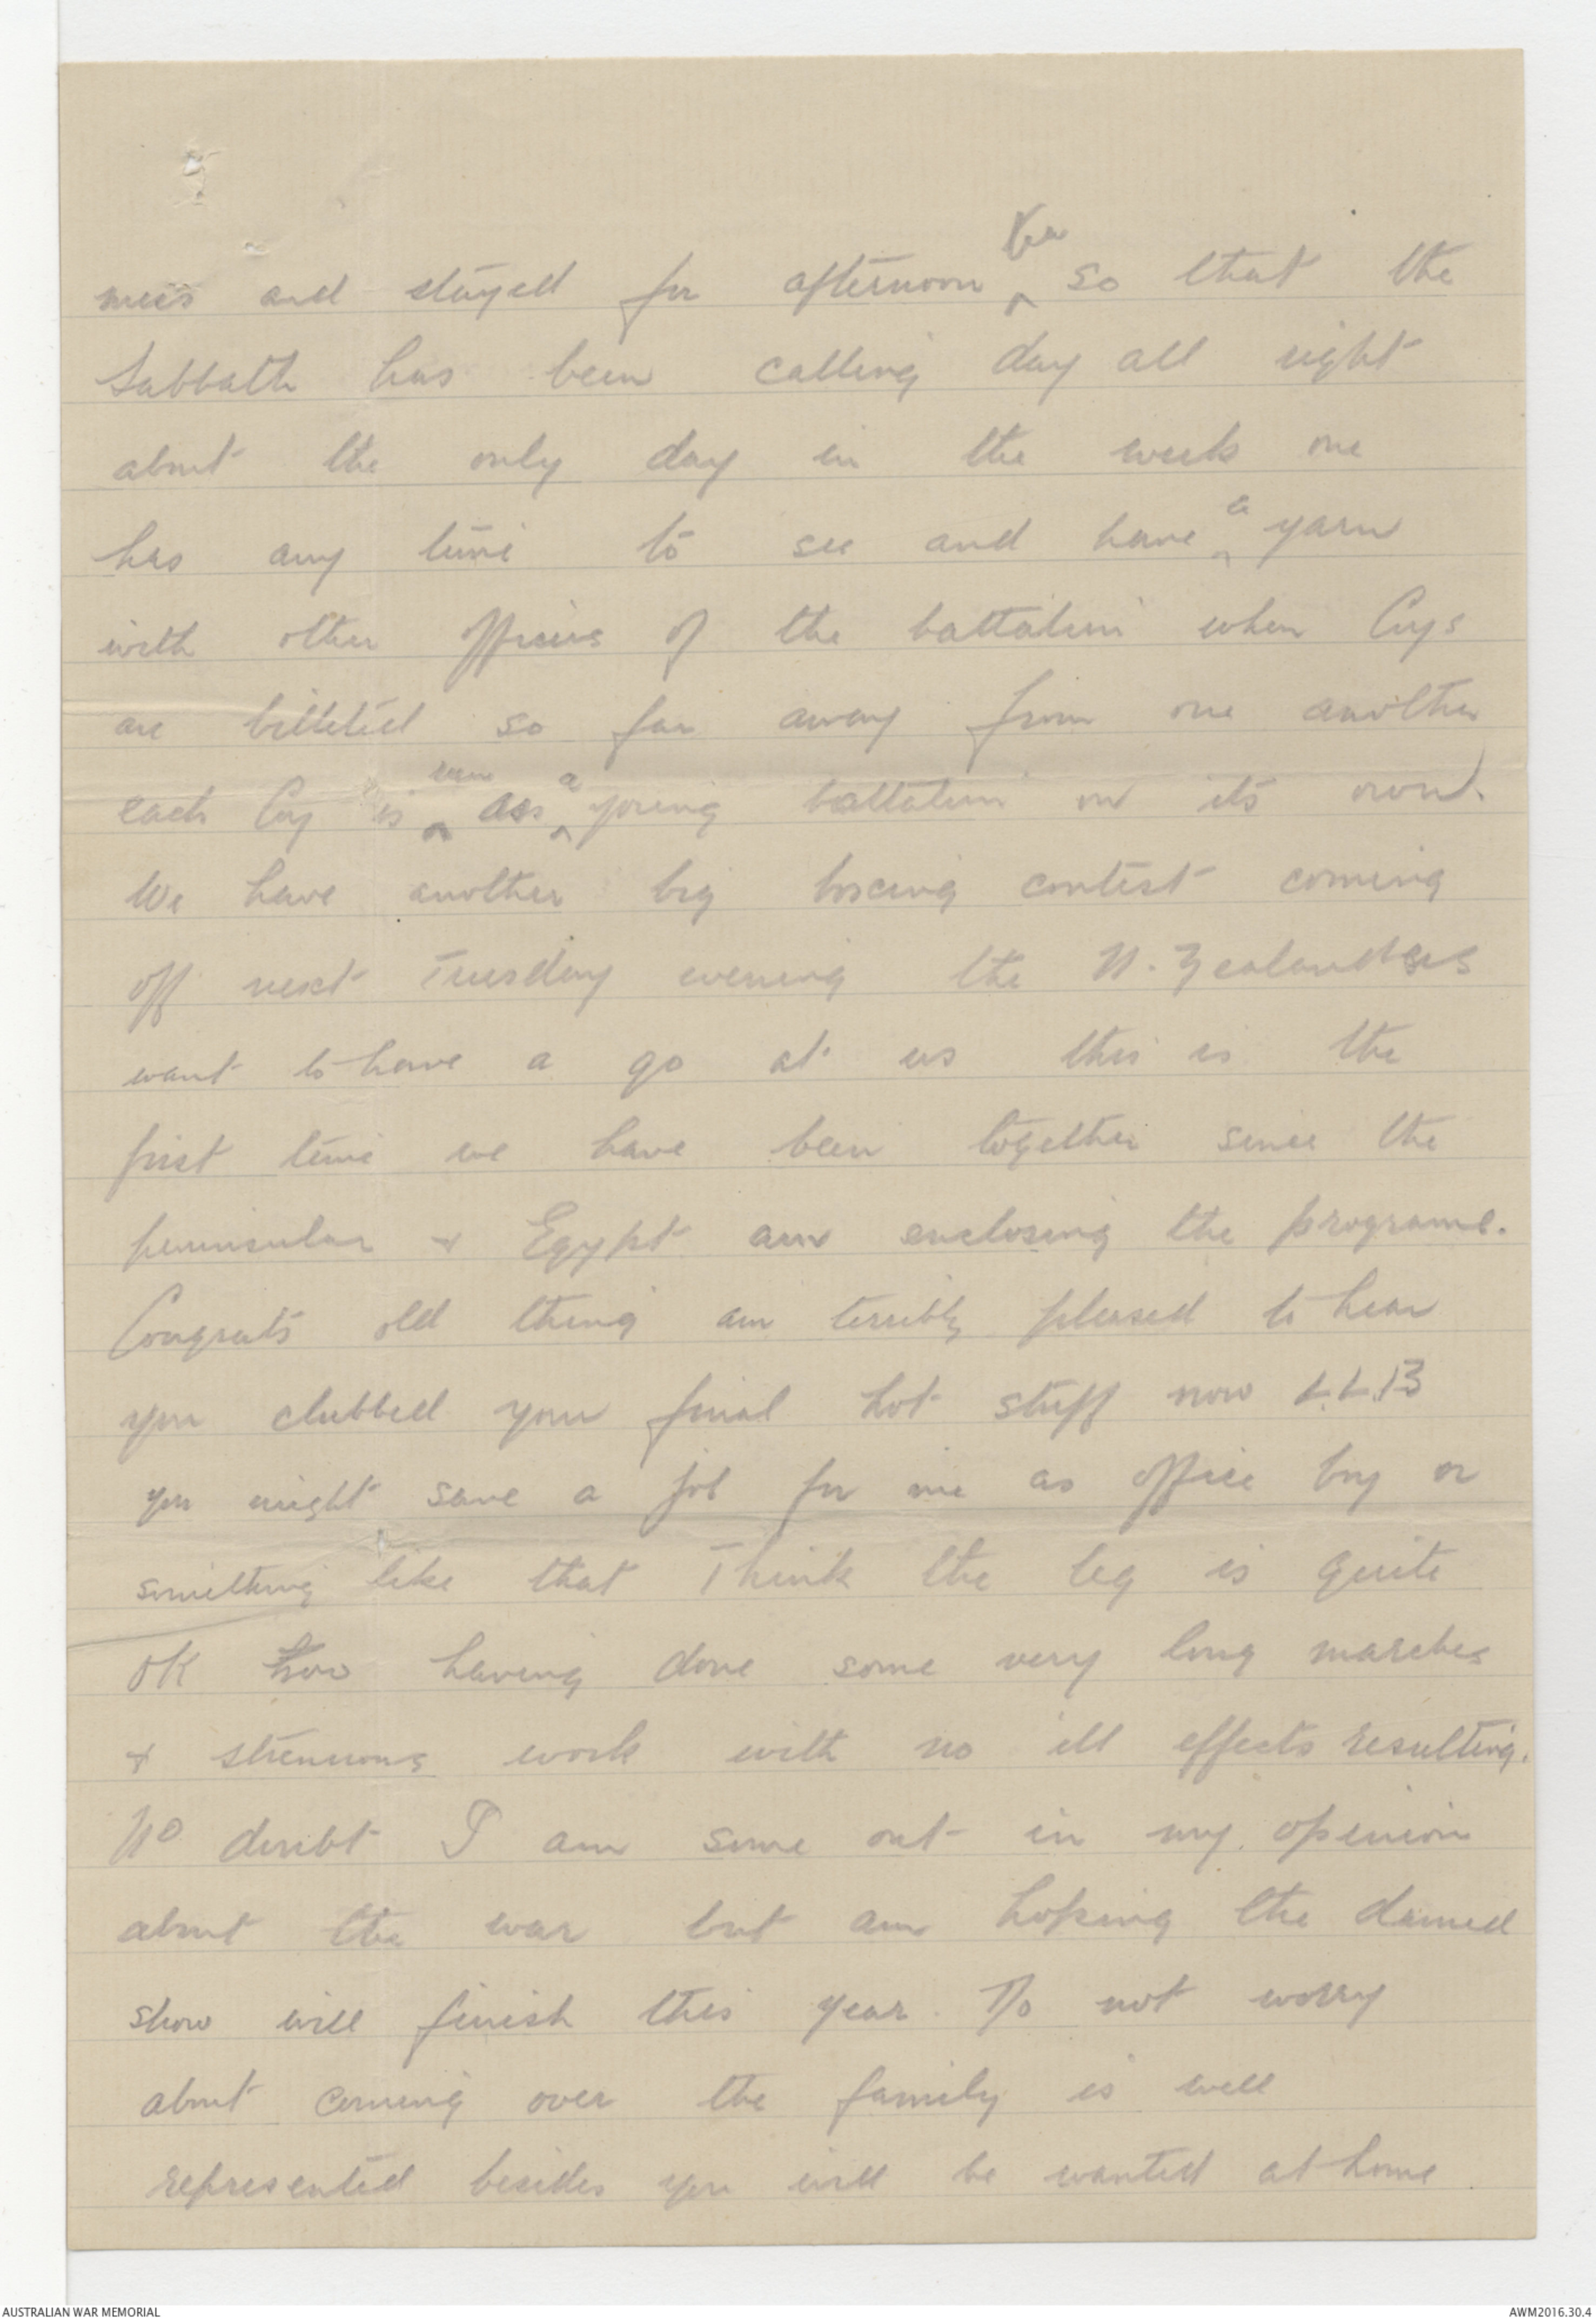 mess and stayed for afternoon tea so that the
Sabbath has been calling day all right
about the only day in the week one
has any time to see and have a yarn
with other officers of the battalion when Coys
are billeted so far away from one another
each Coy is as a young battalion on its own.
We have another big boxing contest coming
off next Tuesday evening the N. Zealanders
want to have a go at us this is the
first time we have been together since the
peninsular & Egypt am enclosing the programe.
Congrats old thing am terribly pleased to hear
you clubbed your final hot stuff now L.L.B
you might save a job for me as office boy or
something like that Think the leg is quite
OK now having done some very long marches
& strenuous work with no ill effects resulting.
No doubt I am some out in my opinion
about the war but am hoping the damed
show will finish this year. Do not worry
about coming over the family is well
represented besides you will be wanted at home
AUSTRALIAN WAR MEMORIAL
AWM2016.30.4